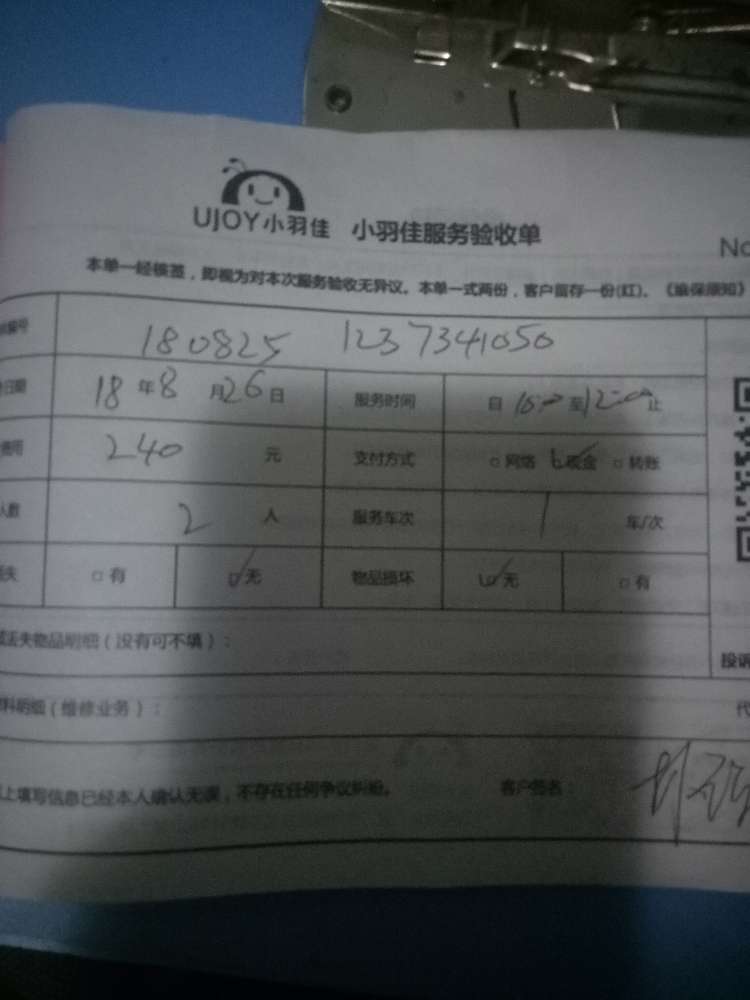 UJOY小羽佳 小羽佳服务验收单
No
本单一经核签，即视为对本次服务验收无异议。本单一式两份，客户留存一份(红)。《维保须知》
编号 180825 1237341050
日期 18年8月26日 服务时间 自 至12:00止
费用 240 元 支付方式 □网络 ☑现金 □转账
人数 2 人 服务车次 1 车/次
失 □有 ☑无 物品损坏 ☑无 □有
失物品明细（没有可不填）：
投诉
料明细（维修业务）：
代
上填写信息已经本人确认无误，不存在任何争议纠纷。 客户签名：